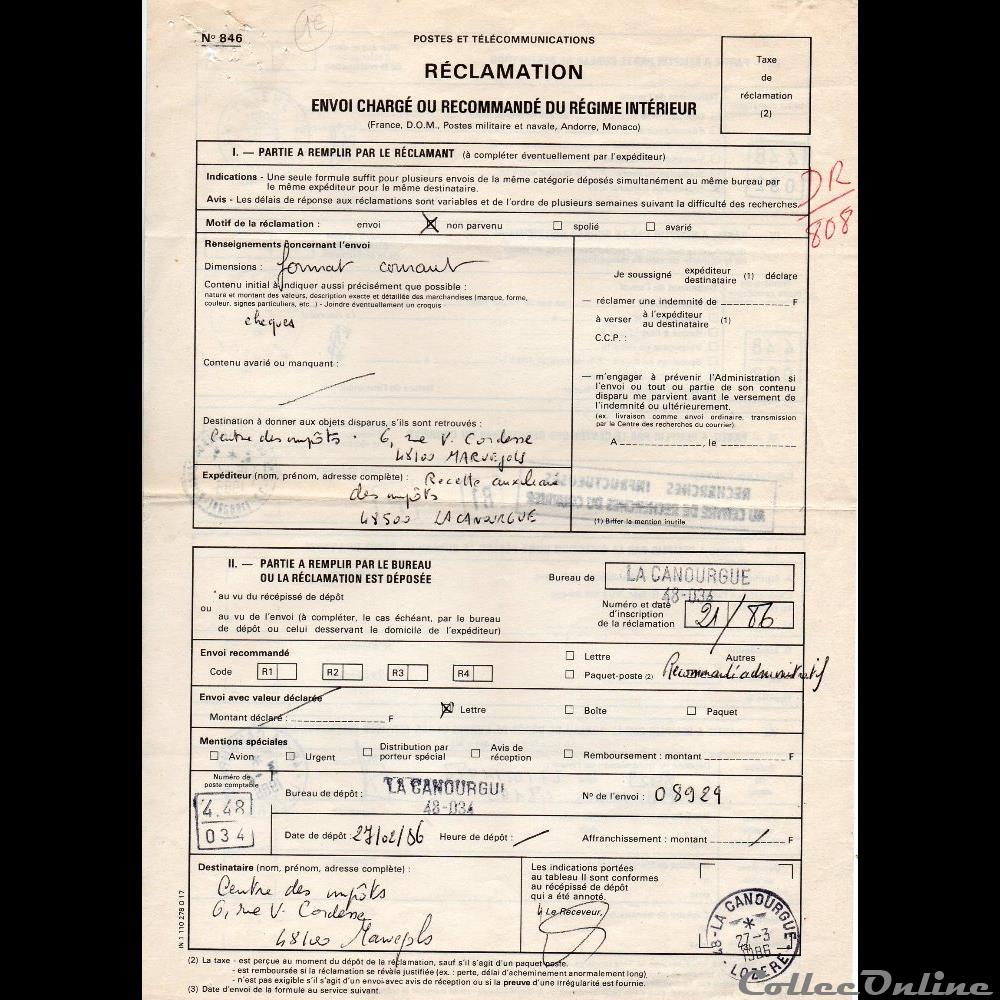 Nº 846
1€
POSTES ET TÉLÉCOMMUNICATIONS
RÉCLAMATION
ENVOI CHARGÉ OU RECOMMANDÉ DU RÉGIME INTÉRIEUR
(France, D.O.M., Postes militaire et navale, Andorre, Monaco)
Taxe
de
réclamation
(2)
I. — PARTIE A REMPLIR PAR LE RÉCLAMANT (à compléter éventuellement par l'expéditeur)
Indications - Une seule formule suffit pour plusieurs envois de la même catégorie déposés simultanément au même bureau par
le même expéditeur pour le même destinataire.
Avis - Les délais de réponse aux réclamations sont variables et de l'ordre de plusieurs semaines suivant la difficulté des recherches.
DR
808
Motif de la réclamation : envoi non parvenu spolié avarié
Renseignements concernant l'envoi
Dimensions : format courant
Contenu initial à indiquer aussi précisément que possible :
nature et montant des valeurs, description exacte et détaillée des marchandises (marque, forme,
couleur, signes particuliers, etc...) - Joindre éventuellement un croquis -
cheques
Contenu avarié ou manquant :
Destination à donner aux objets disparus, s'ils sont retrouvés :
Centre des impôts - 6, rue V. Cordesse
48100 MARVEJOLS
Expéditeur (nom, prénom, adresse complète) : Recette auxiliaire
des impôts
48500 LA CANOURGUE
Je soussigné expéditeur
destinataire (1) déclare
— réclamer une indemnité de F
à verser à l'expéditeur
au destinataire (1)
C.C.P. :
— m'engager à prévenir l'Administration si
l'envoi ou tout ou partie de son contenu
disparu me parvient avant le versement de
l'indemnité ou ultérieurement.
(ex. livraison comme envoi ordinaire, transmission
par le Centre des recherches du courrier).
A , le
RECHERCHES INFRUCTUEUSES
AU CENTRE DE RECHERCHES DU COURRIER
(1) Biffer la mention inutile
II. — PARTIE A REMPLIR PAR LE BUREAU
OU LA RÉCLAMATION EST DÉPOSÉE
au vu du récépissé de dépôt
ou
au vu de l'envoi (à compléter, le cas échéant, par le bureau
de dépôt ou celui desservant le domicile de l'expéditeur)
Bureau de LA CANOURGUE
48-034
Numéro et date
d'inscription
de la réclamation 21/86
Envoi recommandé
Code R1 R2 R3 R4
Lettre Autres
Paquet-poste (2) Recommandé administratif
Envoi avec valeur déclarée
Montant déclaré : F
Lettre Boîte Paquet
Mentions spéciales
Avion Urgent Distribution par
porteur spécial Avis de
réception Remboursement : montant F
Numéro de
poste comptable
4.48
034
Bureau de dépôt : LA CANOURGUE
48-034
Nº de l'envoi : 08929
Date de dépôt : 27/02/86 Heure de dépôt : / Affranchissement : montant / F
Destinataire (nom, prénom, adresse complète) :
Centre des impôts
6, rue V. Cordesse
48100 Marvejols
Les indications portées
au tableau II sont conformes
au récépissé de dépôt
qui a été annoté.
Le Receveur,
48-LA CANOURGUE
27-3
1986
LOZERE
IN 1 110 278 0 17
(2) La taxe - est perçue au moment du dépôt de la réclamation, sauf s'il s'agit d'un paquet-poste.
- est remboursée si la réclamation se révèle justifiée (ex. : perte, délai d'acheminement anormalement long),
- n'est pas exigible s'il s'agit d'un envoi avec avis de réception ou si la preuve d'une irrégularité est fournie.
(3) Date d'envoi de la formule au service suivant.
CollecOnline